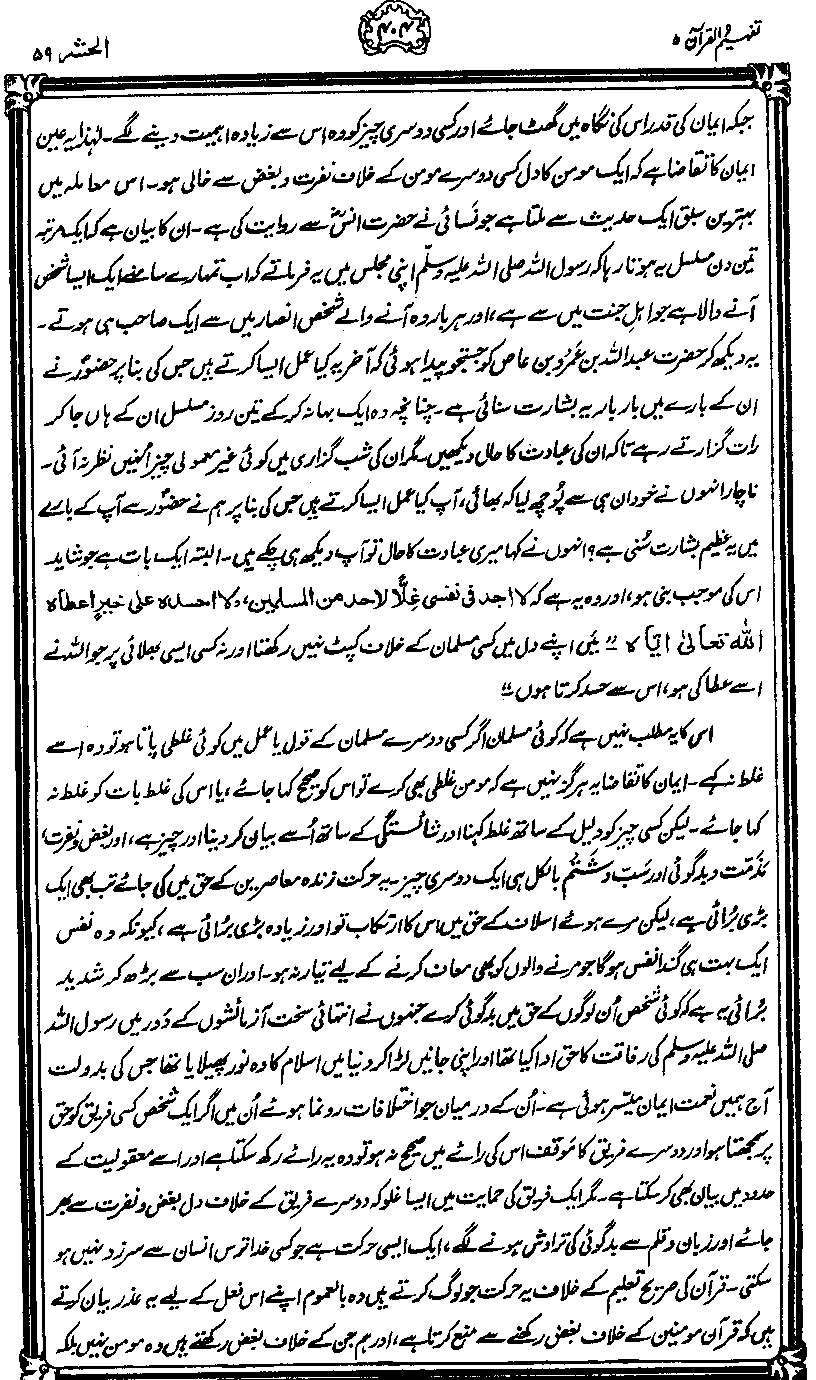 تفہیم القرآن ۵
۴۰۴
الحشر ۵۹
جبکہ ایمان کی قدر اس کی نگاہ میں گھٹ جائے اور کسی دوسری چیز کو وہ اس سے زیادہ اہمیت دینے لگے۔ لہٰذا یہ عین
ایمان کا تقاضا ہے کہ ایک مومن کا دل کسی دوسرے مومن کے خلاف نفرت و بغض سے خالی ہو۔ اس معاملہ میں
بہترین سبق ایک حدیث سے ملتا ہے جو نسائی نے حضرت انسؓ سے روایت کی ہے۔ ان کا بیان ہے کہ ایک مرتبہ
تین دن مسلسل یہ ہوتا رہا کہ رسول اللہ صلی اللہ علیہ وسلم اپنی مجلس میں یہ فرماتے کہ اب تمہارے سامنے ایک ایسا شخص
آنے والا ہے جو اہلِ جنت میں سے ہے، اور ہر بار وہ آنے والے شخص انصار میں سے ایک صاحب ہی ہوتے۔
یہ دیکھ کر حضرت عبداللہ بن عَمْرو بن عاص کو جستجو پیدا ہوئی کہ آخر یہ کیا عمل ایسا کرتے ہیں جس کی بنا پر حضورؐ نے
ان کے بارے میں بار بار یہ بشارت سنائی ہے۔ چنانچہ وہ ایک بہانہ کر کے تین روز مسلسل ان کے ہاں جا کر
رات گزارتے رہے تاکہ ان کی عبادت کا حال دیکھیں۔ مگر ان کی شب گزاری میں کوئی غیر معمولی چیز انہیں نظر نہ آئی۔
ناچار انہوں نے خود ان ہی سے پُوچھ لیا کہ بھائی، آپ کیا عمل ایسا کرتے ہیں جس کی بنا پر ہم نے حضورؐ سے آپ کے بارے
میں یہ عظیم بشارت سُنی ہے؟ انہوں نے کہا میری عبادت کا حال تو آپ دیکھ ہی چکے ہیں۔ البتہ ایک بات ہے جو شاید
اس کی موجب بنی ہو، اور وہ یہ ہے کہ لا اجد فی نفسی غِلًّا لاحد من المسلمین، ولا احسدہ علی خیرٍ اعطاہ
اللہ تعالیٰ ایّاہ۔ "مَیں اپنے دل میں کسی مسلمان کے خلاف کپٹ نہیں رکھتا اور نہ کسی ایسی بھلائی پر جو اللہ نے
اسے عطا کی ہو، اس سے حسد کرتا ہوں"
اس کا یہ مطلب نہیں ہے کہ کوئی مسلمان اگر کسی دوسرے مسلمان کے قول یا عمل میں کوئی غلطی پاتا ہو تو وہ اسے
غلط نہ کہے۔ ایمان کا تقاضا یہ ہرگز نہیں ہے کہ مومن غلطی بھی کرے تو اس کو صحیح کہا جائے، یا اس کی غلط بات کو غلط نہ
کہا جائے۔ لیکن کسی چیز کو دلیل کے ساتھ غلط کہنا اور شائستگی کے ساتھ اُسے بیان کر دینا اور چیز ہے، اور بغض و نفرت،
مَذمّت و بدگوئی اور سَبّ و شَتْم بالکل ہی ایک دوسری چیز۔ یہ حرکت زندہ معاصرین کے حق میں کی جائے تب بھی ایک
بڑی برُائی ہے، لیکن مرے ہوئے اسلاف کے حق میں اس کا ارتکاب تو اور زیادہ بڑی برُائی ہے، کیونکہ وہ نفس
ایک بہت ہی گندا نفس ہوگا جو مرنے والوں کو بھی معاف کرنے کے لیے تیار نہ ہو۔ اور ان سب سے بڑھ کر شدید
برُائی یہ ہے کہ کوئی شخص اُن لوگوں کے حق میں بدگوئی کرے جنہوں نے انتہائی سخت آزمائشوں کے دَور میں رسول اللہ
صلی اللہ علیہ وسلم کی رفاقت کا حق ادا کیا تھا اور اپنی جانیں لڑا کر دنیا میں اسلام کا وہ نور پھیلایا تھا جس کی بدولت
آج ہمیں نعمت ایمان میسّر ہوئی ہے۔ اُن کے درمیان جو اختلافات رونما ہوئے اُن میں اگر ایک شخص کسی فریق کو حق
پر سمجھتا ہو اور دوسرے فریق کا مَوقف اس کی رائے میں صحیح نہ ہو تو وہ یہ رائے رکھ سکتا ہے اور اسے معقولیت کے
حدود میں بیان بھی کر سکتا ہے۔ مگر ایک فریق کی حمایت میں ایسا غلو کہ دوسرے فریق کے خلاف دل بغض و نفرت سے بھر
جائے اور زبان و قلم سے بدگوئی کی تراوش ہونے لگے، ایک ایسی حرکت ہے جو کسی خدا ترس انسان سے سرزد نہیں ہو
سکتی۔ قرآن کی صریح تعلیم کے خلاف یہ حرکت جو لوگ کرتے ہیں وہ بالعموم اپنے اس فعل کے لیے یہ عذر بیان کرتے
ہیں کہ قرآن مومنین کے خلاف بغض رکھنے سے منع کرتا ہے، اور ہم جن کے خلاف بغض رکھتے ہیں وہ مومن نہیں بلکہ